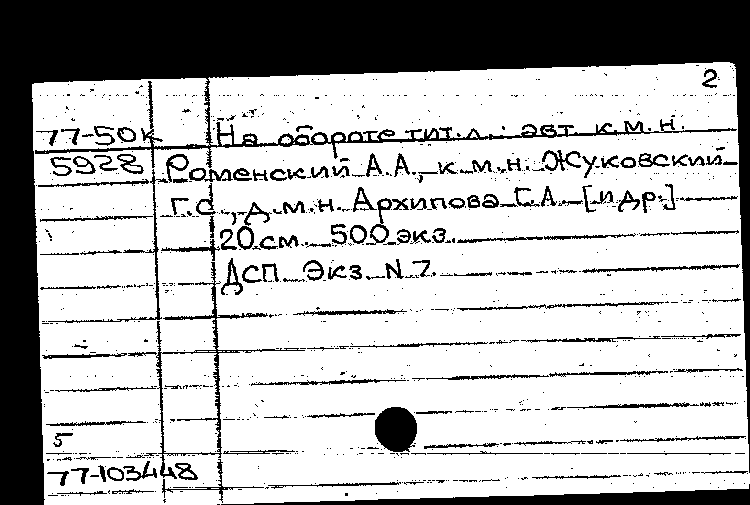 2
77-50к На обороте тит.л.: авт. к.м.н.
5928 Роменский А.А., к.м.н. Жуковский
Г.С., д.м.н. Архипова Г.А. [и др.]
20 см. 500 экз.
ДСП. Экз. N 7.
5
77-103448